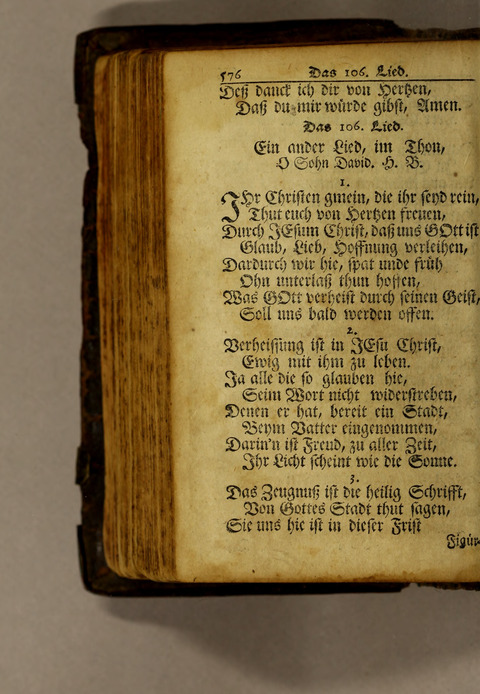 576 Das 106. Lied.
Deß danck ich dir von Hertzen,
Daß du mir würde gibst, Amen.
Das 106. Lied.
Ein ander Lied, im Thon,
O Sohn David. H. B.
1.
IHr Christen gmein, die ihr seyd rein,
Thut euch von Hertzen freuen,
Durch JEsum Christ, daß uns GOtt ist
Glaub, Lieb, Hoffnung verleihen,
Dardurch wir hie, spat unde früh
Ohn unterlaß thun hoffen,
Was GOtt verheist durch seinen Geist,
Soll uns bald werden offen.
2.
Verheissung ist in JEsu Christ,
Ewig mit ihm zu leben.
Ja alle die so glauben hie,
Seim Wort nicht widerstreben,
Denen er hat, bereit ein Stadt,
Beym Vatter eingenommen,
Darin'n ist Freud, zu aller Zeit,
Ihr Licht scheint wie die Sonne.
3.
Das Zeugnuß ist die heilig Schrifft,
Von Gottes Stadt thut sagen,
Sie uns hie ist in dieser Frist
Figür-